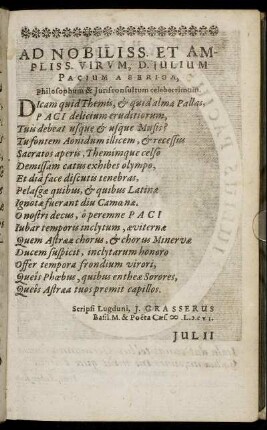 AD NOBILISS. ET AM-
PLISS. VIRVM, D. IULIUM
PACIUM A BERIGA,
Philosophum & Jurisconsultum celeberrimum.
DIcam quid Themis, & quid alma Pallas,
PACI delicium eruditiorum,
Tuis debeat usque & usque Musis?
Tu fontem Aonidum illicem, & recessus
Sacratos aperis, Themimque celso
Demissam catus exhibes olympo,
Et diâ face discutis tenebras,
Pelasgæ quibus, & quibus Latinæ
Ignotæ fuerant diu Camœnæ.
O nostri decus, ô perenne PACI
Iubar temporis inclytum, æviternæ
Quem Astrææ chorus, & chorus Minervæ
Ducem suspicit, inclytarum honoro
Offer tempora frondium virori,
Queis Phœbus, quibus entheæ Sorores,
Queis Astræa tuos premit capillos.
Scripsi Lugduni, J. GRASSERUS
Basil. M. & Poëta Cæs.
JULII